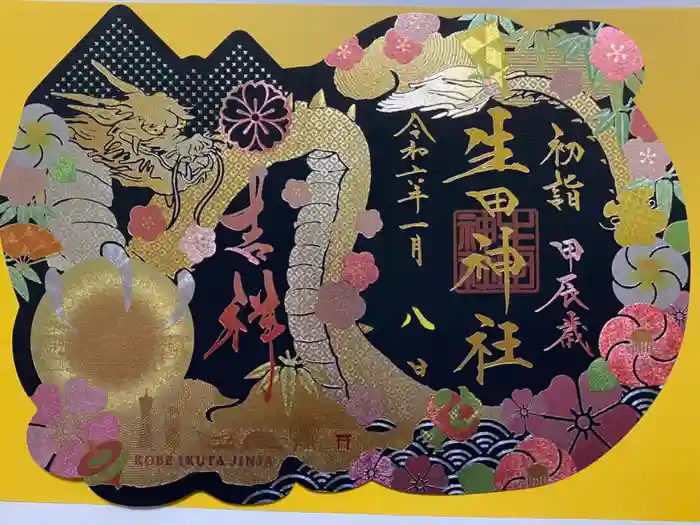 初詣
甲辰歳
生田神社
令和六年一月八日
吉祥
KOBE IKUTA JINJA